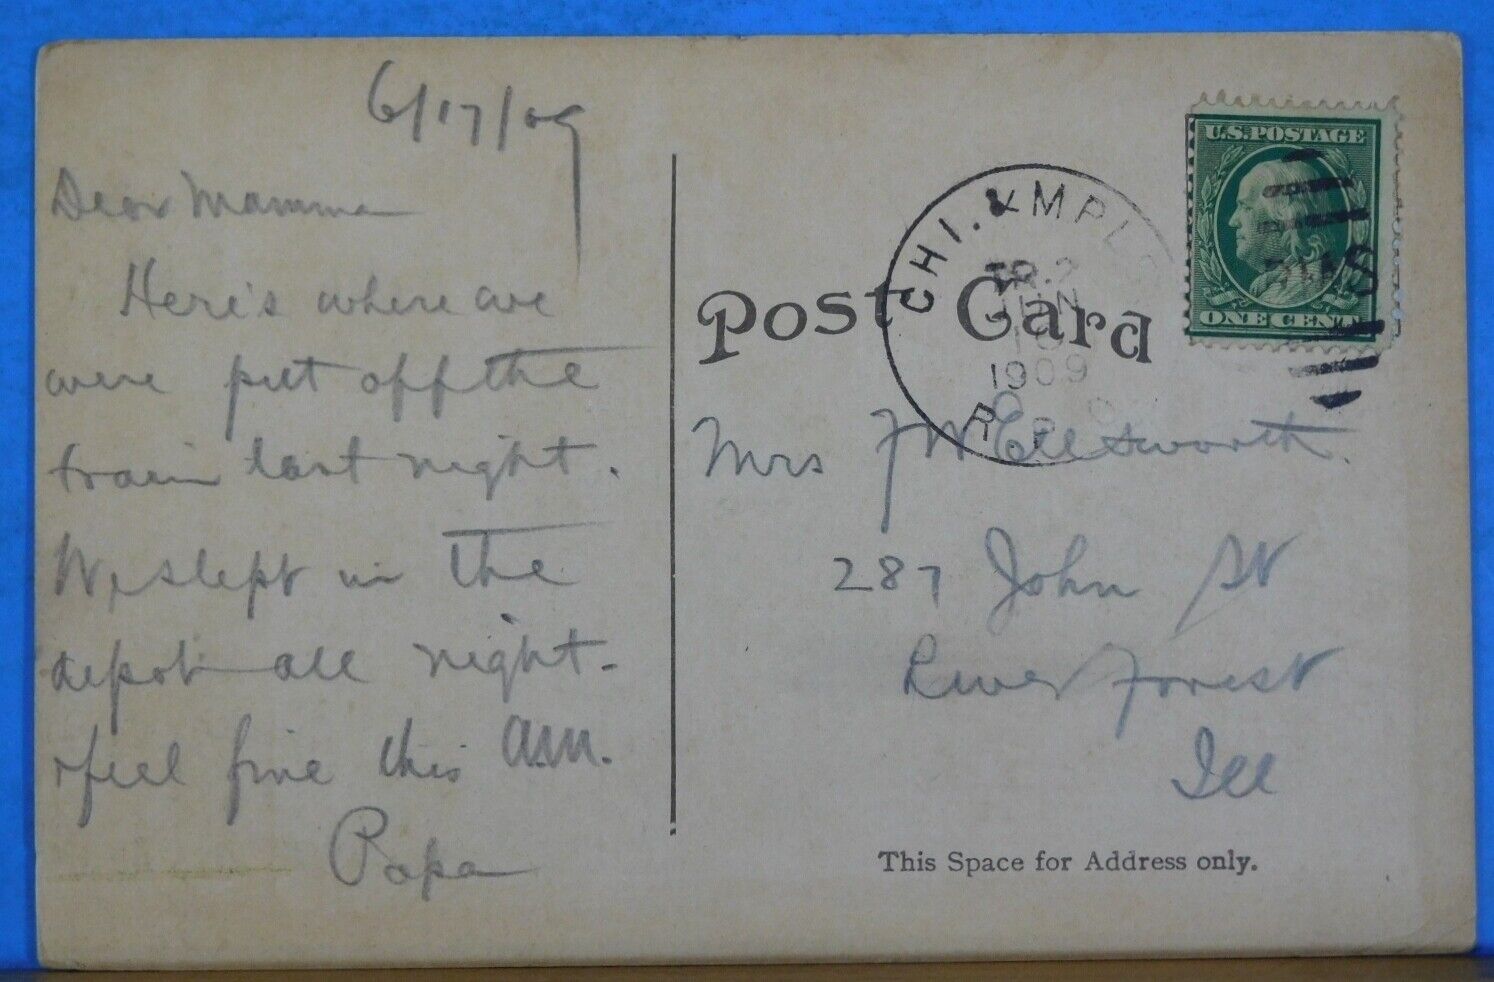 6/17/09
Dear Mamma
Here's where we
were put off the
train last night.
We slept in the
depot all night.
feel fine this A.M.
Papa
Post Card
CHI. & MPLS
TR. 2
JUN
1909
R.P.O.
U.S. POSTAGE
ONE CENT
RMS
Mrs F W Ellsworth.
287 John St
River Forest
Ill
This Space for Address only.